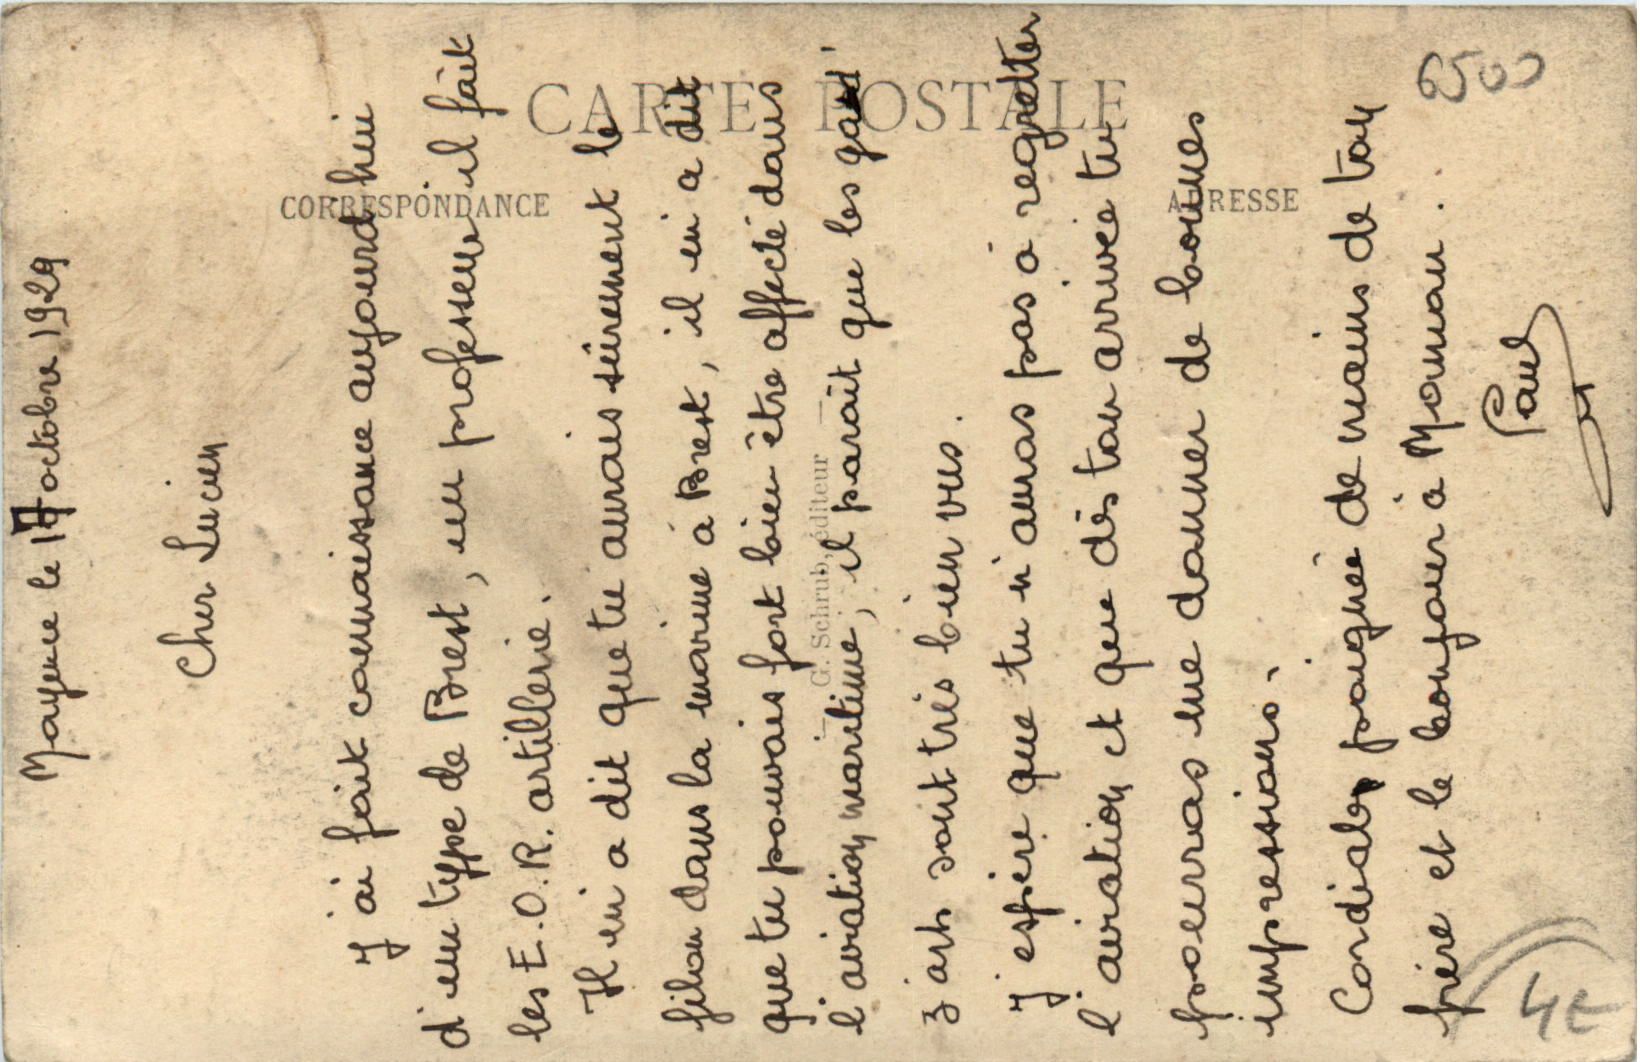 CARTE POSTALE
CORRESPONDANCE
ADRESSE
G. Schrub, éditeur
6500
4E
Mayence le 17 octobre 1929
Cher Lucien
J'ai fait connaissance aujourd'hui
d'un type de Brest, un professeur il fait
les E.O.R. artillerie.
Il m'a dit que tu aurais sûrement le
filon dans la marine à Brest, il m'a dit
que tu pouvais fort bien être affecté dans
l'aviation maritime, il parait que les gad'
z'arts sont très bien vus.
J'espère que tu n'auras pas à regretter
l'aviation et que dès ton arrivée tu
pourras me donner de bonnes
impressions.
Cordiales poignée de mains de ton
frère et le bonjour à Maman.
Paul